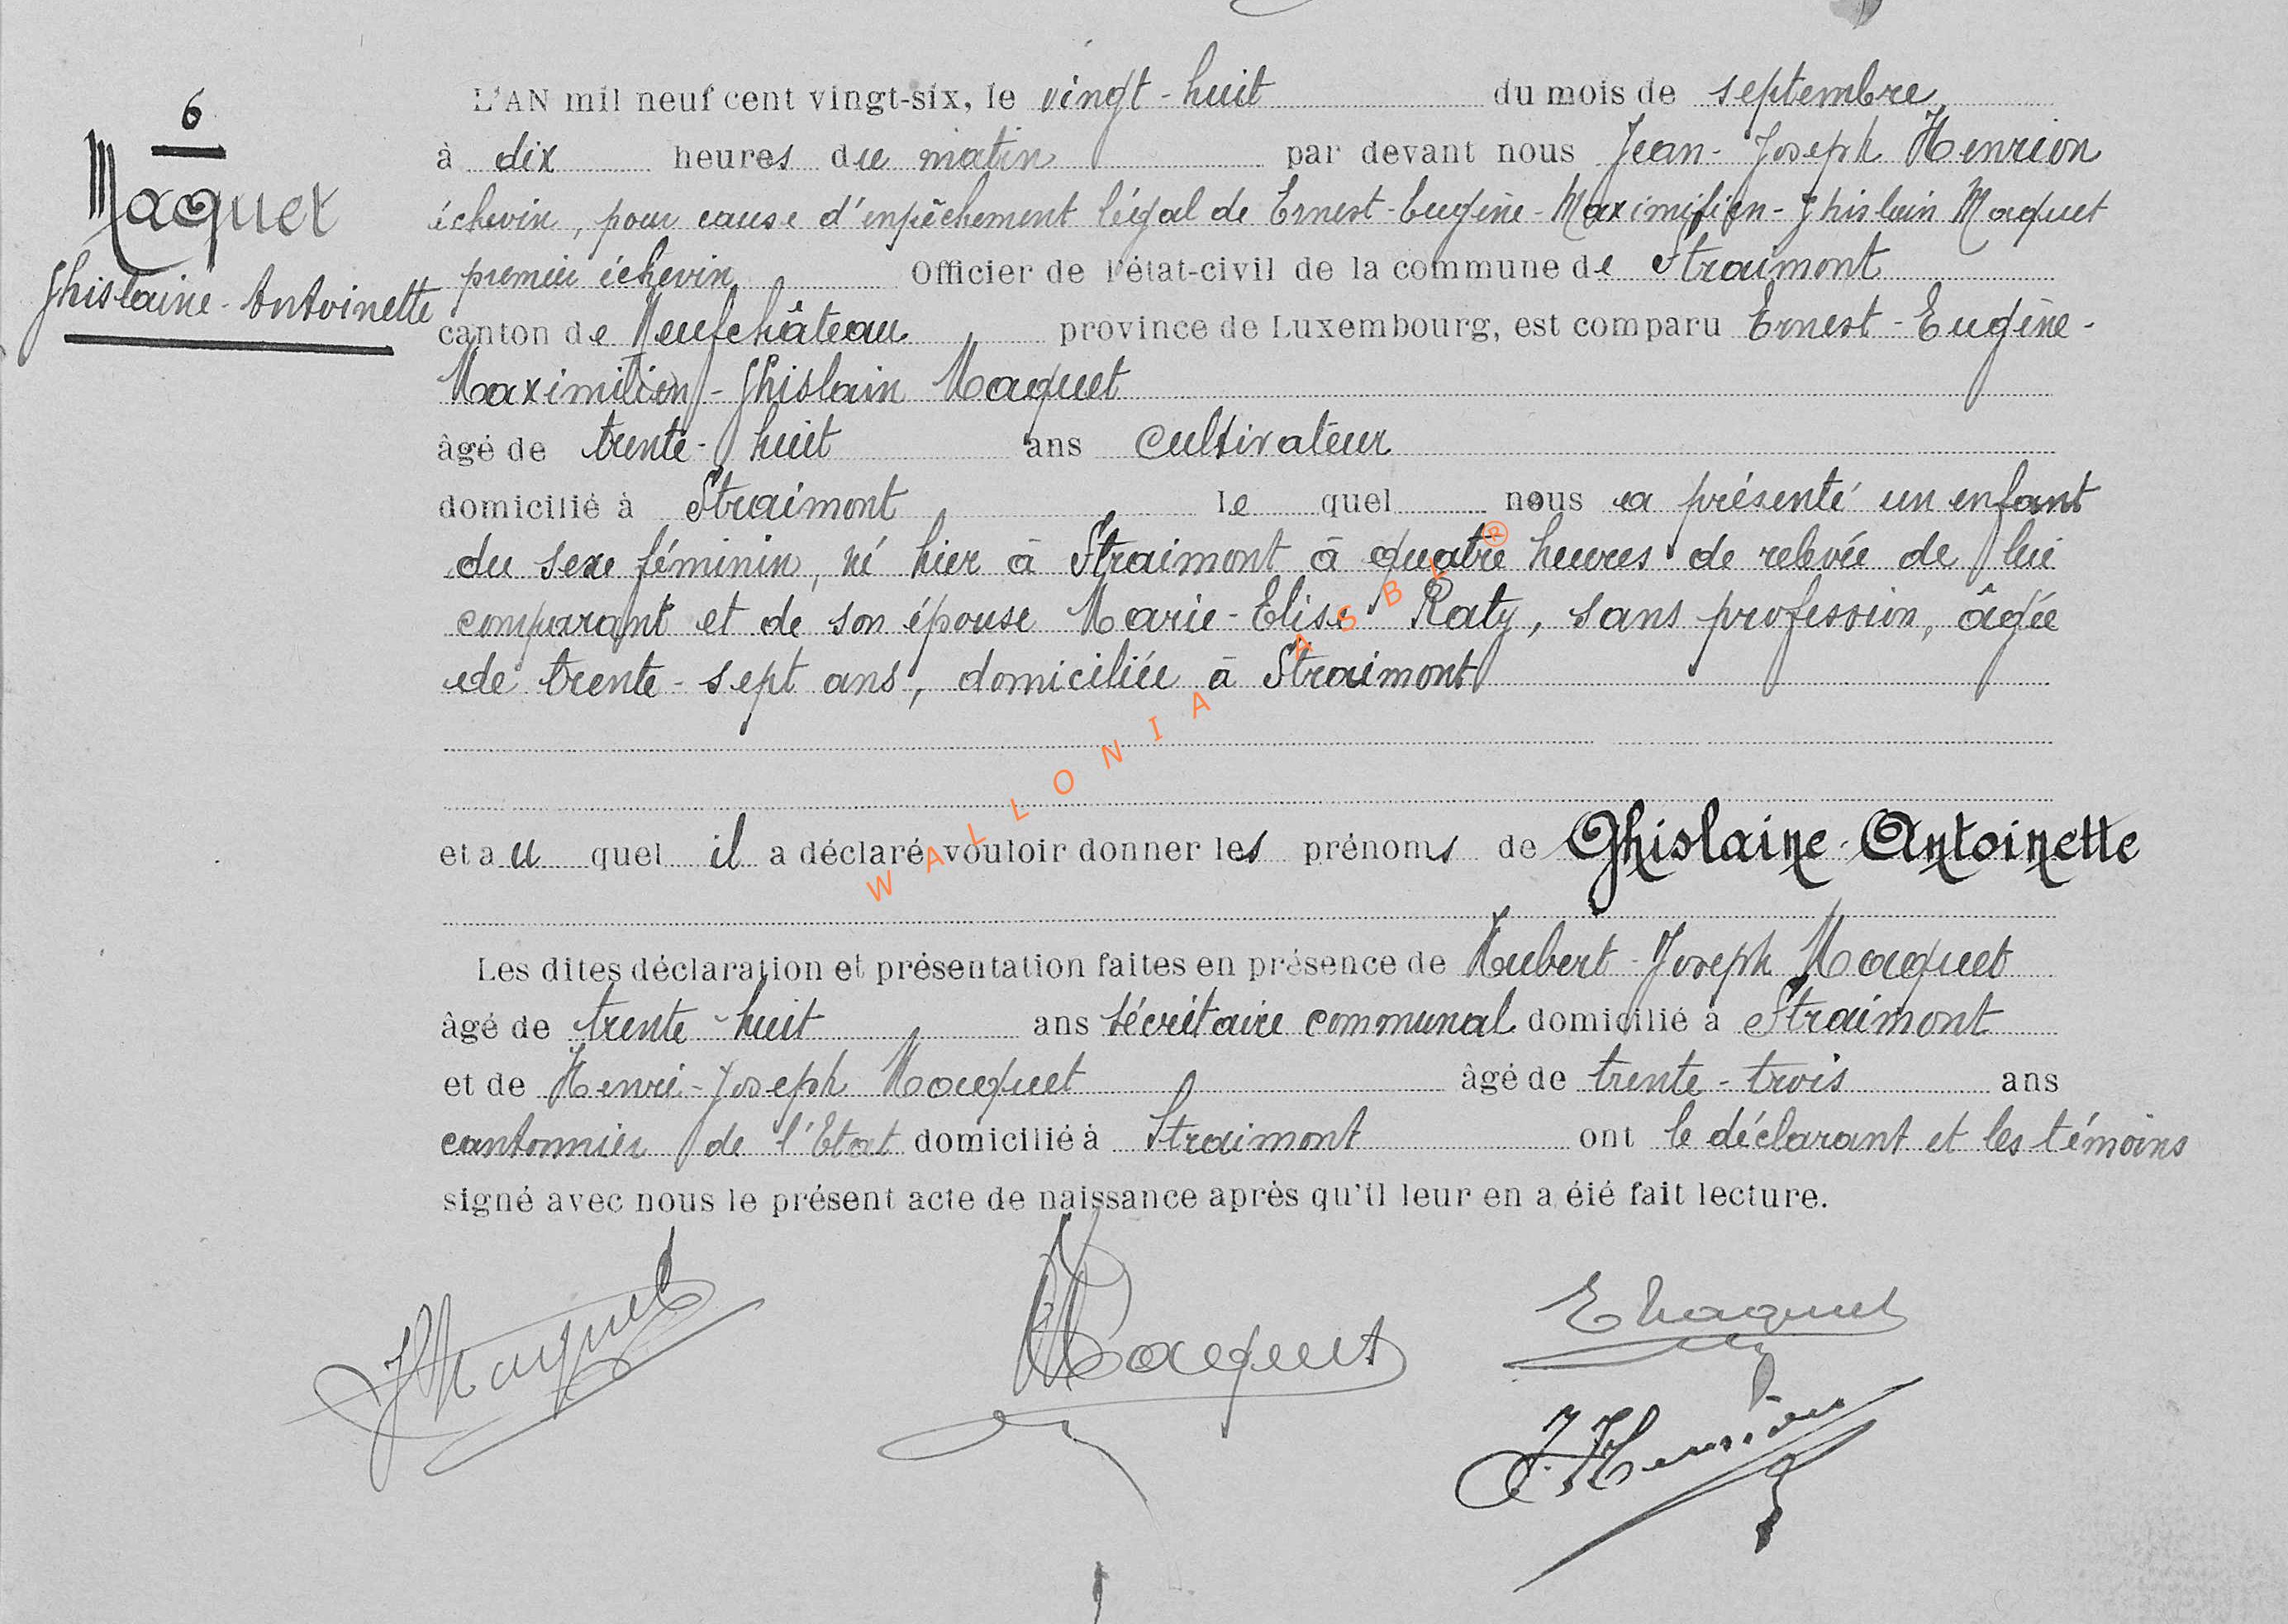 6
Maquet
Ghislaine-Antoinette
L'AN mil neuf cent vingt-six, le vingt-huit du mois de septembre,
à dix heures du matin par devant nous Jean-Joseph Henrion
échevin, pour cause d'enpêchement légal de Ernest-Eugène-Maximilien-Ghislain Maquet
premier échevin Officier de l'état-civil de la commune de Straimont
canton de Neufchâteau province de Luxembourg, est comparu Ernest-Eugène-
Maximilien-Ghislain Maquet
âgé de trente-huit ans cultivateur
domicilié à Straimont le quel nous a présenté un enfant
du sexe féminin, né hier à Straimont à quatre heures de relevée de lui
comparant et de son épouse Marie-Elise Raty, sans profession, âgée
de trente-sept ans, domiciliée à Straimont
et au quel il a déclaré vouloir donner les prénoms de Ghislaine-Antoinette
Les dites déclaration et présentation faites en présence de Hubert-Joseph Maquet
âgé de trente-huit ans sécrétaire communal domicilié à Straimont
et de Henri-Joseph Maquet âgé de trente-trois ans
cantonnier de l'Etat domicilié à Straimont ont le déclarant et les témoins
signé avec nous le présent acte de naissance après qu'il leur en a été fait lecture.
Maquet
Maquet
E Maquet
J. Henrion
WALLONIA ASBL ®